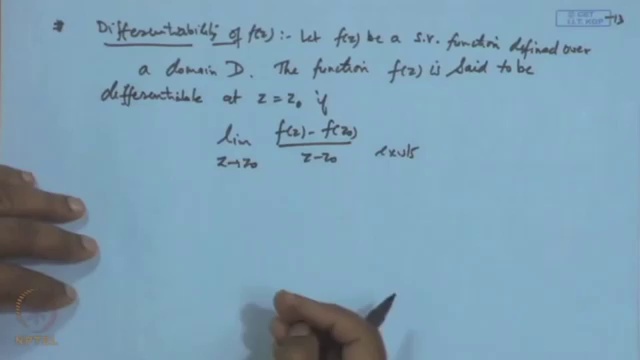 © CET
I.I.T. KGP
-13
* Differentiability of f(z) :- Let f(z) be a s.v. function defined over
a domain D. The function f(z) is said to be
differentiable at z = z₀ if
lim f(z) - f(z₀)
z→z₀ z - z₀ exists
NPTEL